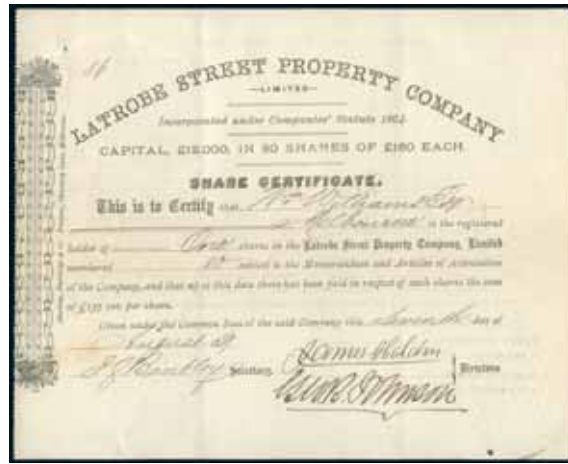 LATROBE STREET PROPERTY COMPANY
—LIMITED—
Incorporated under Companies' Statute 1864.
CAPITAL, £12,000, IN 80 SHARES OF £150 EACH.
SHARE CERTIFICATE.
This is to Certify that Wm Williams Esq
of Melbourne is the registered
holder of One shares in the Latrobe Street Property Company, Limited
numbered subject to the Memorandum and Articles of Association
of the Company, and that up to this date there has been paid in respect of such shares the sum
of per share.
Given under the Common Seal of the said Company this day of
August
Secretary.
Directors
Geo R Johnson